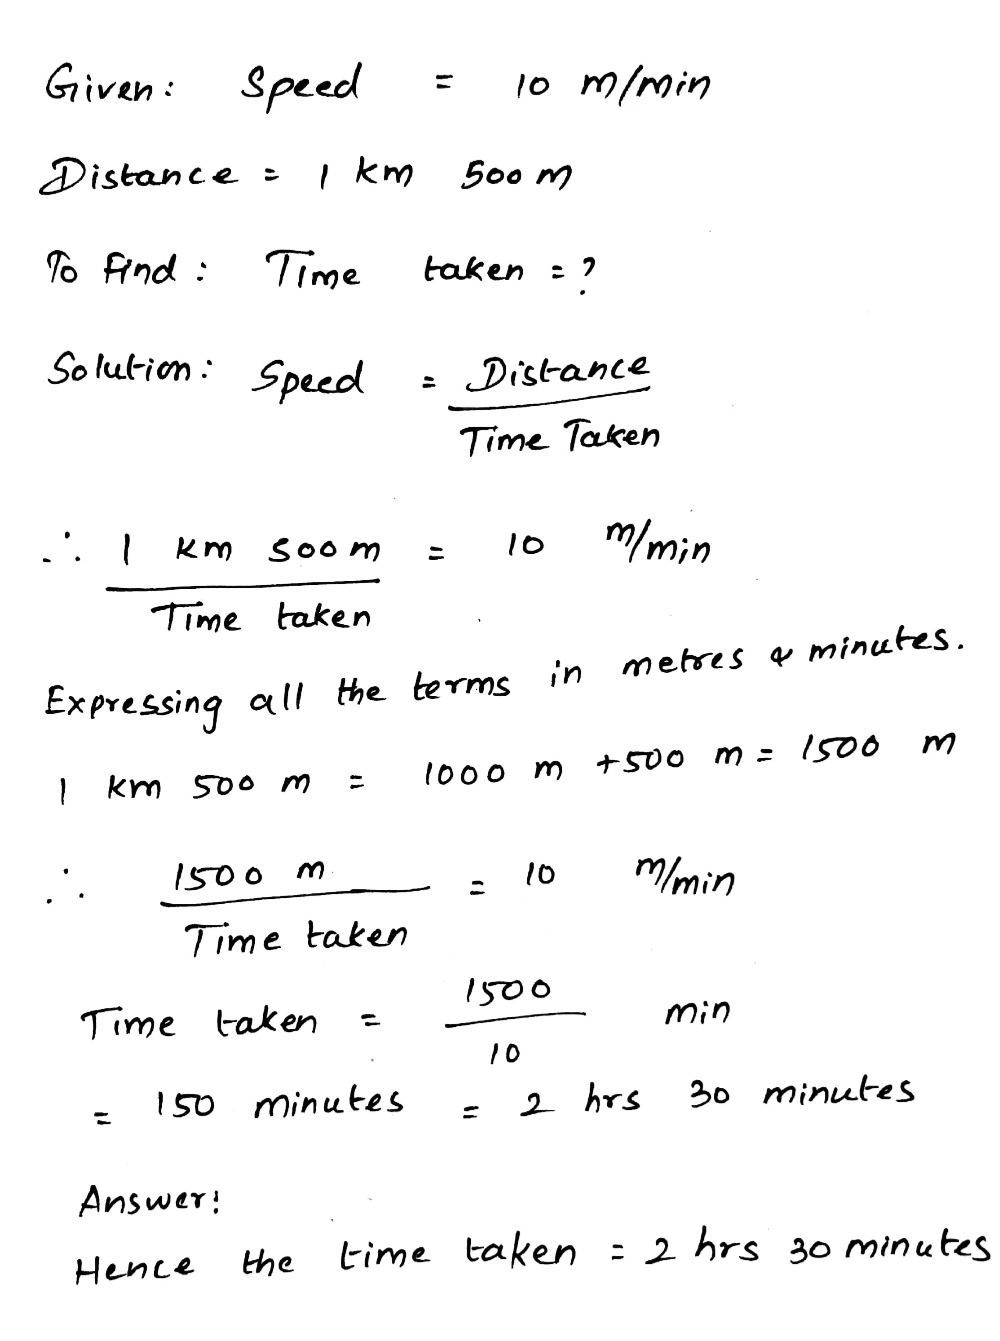 Given: Speed = 10 m/min
Distance = 1 km 500 m
To find: Time taken = ?
Solution: Speed = Distance
Time Taken
∴ 1 km 500 m = 10 m/min
Time taken
Expressing all the terms in metres & minutes.
1 km 500 m = 1000 m + 500 m = 1500 m
∴ 1500 m = 10 m/min
Time taken
Time taken = 1500 min
10
= 150 minutes = 2 hrs 30 minutes
Answer:
Hence the time taken = 2 hrs 30 minutes